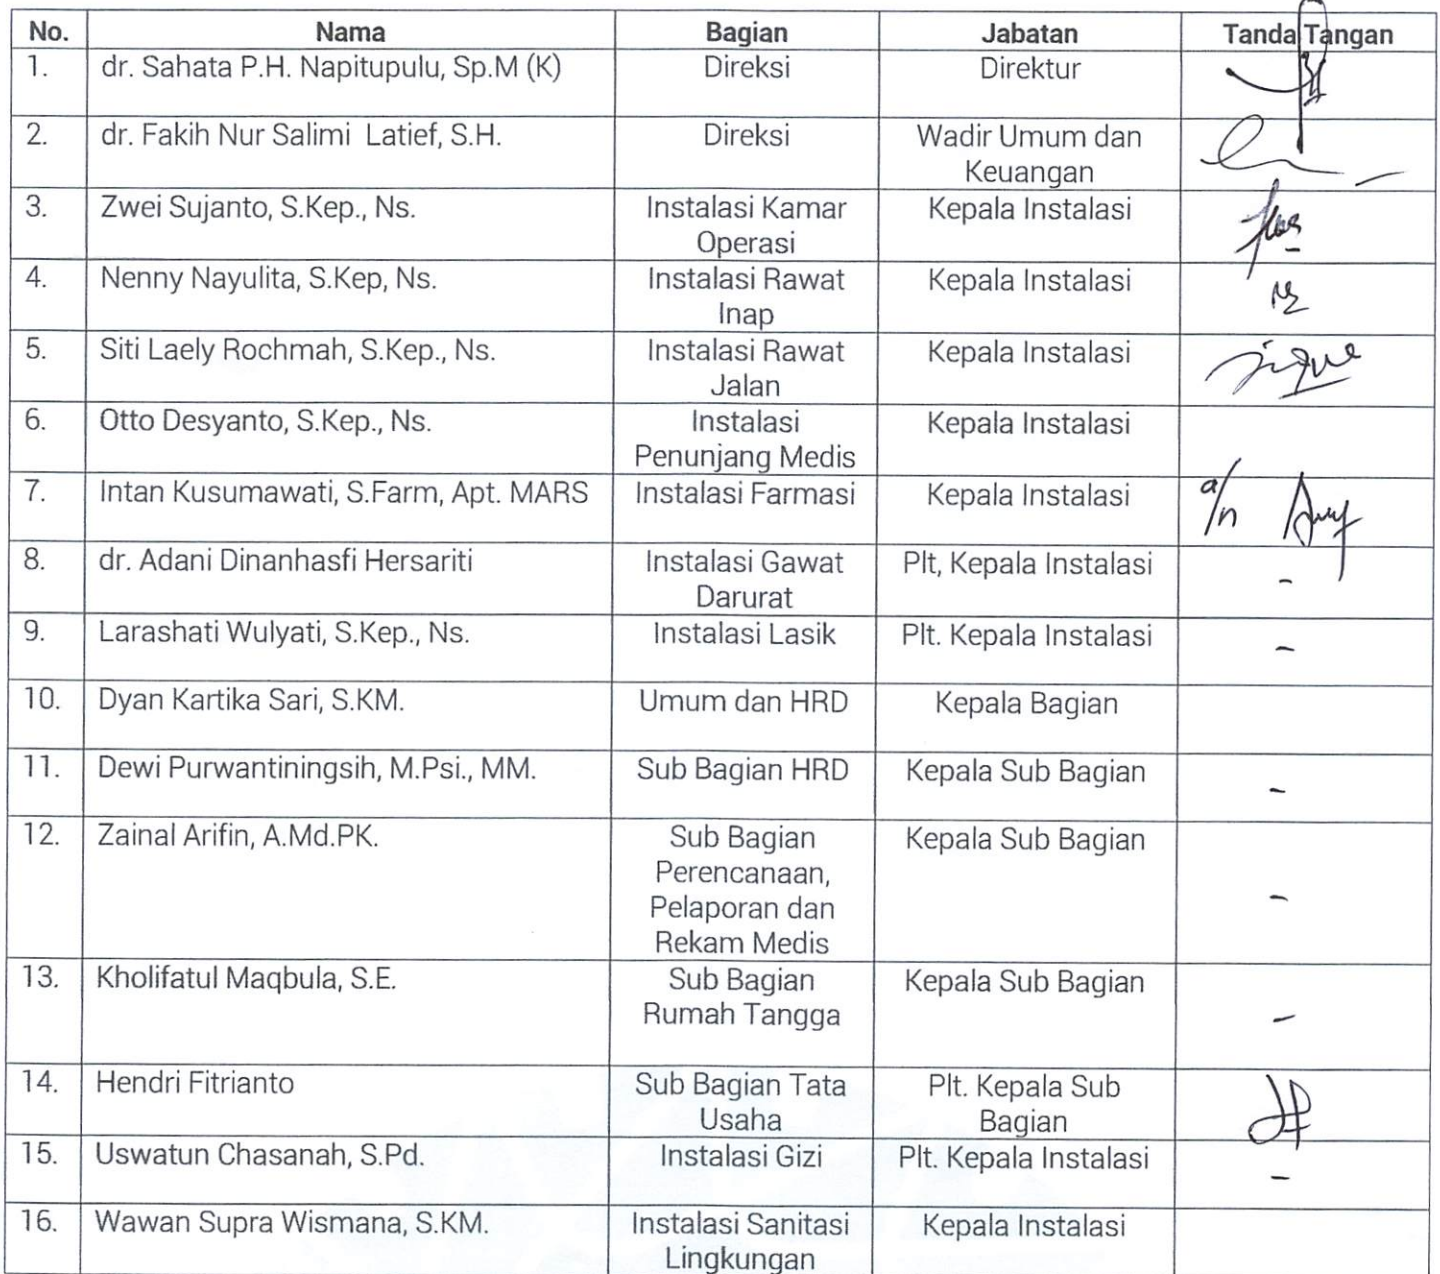 No. Nama Bagian Jabatan Tanda Tangan
1. dr. Sahata P.H. Napitupulu, Sp.M (K) Direksi Direktur
2. dr. Fakih Nur Salimi Latief, S.H. Direksi Wadir Umum dan
Keuangan
3. Zwei Sujanto, S.Kep., Ns. Instalasi Kamar Kepala Instalasi
Operasi -
4. Nenny Nayulita, S.Kep, Ns. Instalasi Rawat Kepala Instalasi
Inap
5. Siti Laely Rochmah, S.Kep., Ns. Instalasi Rawat Kepala Instalasi
Jalan
6. Otto Desyanto, S.Kep., Ns. Instalasi Kepala Instalasi
Penunjang Medis
7. Intan Kusumawati, S.Farm, Apt. MARS Instalasi Farmasi Kepala Instalasi a/n
8. dr. Adani Dinanhasfi Hersariti Instalasi Gawat Plt, Kepala Instalasi -
Darurat
9. Larashati Wulyati, S.Kep., Ns. Instalasi Lasik Plt. Kepala Instalasi -
10. Dyan Kartika Sari, S.KM. Umum dan HRD Kepala Bagian
11. Dewi Purwantiningsih, M.Psi., MM. Sub Bagian HRD Kepala Sub Bagian -
12. Zainal Arifin, A.Md.PK. Sub Bagian Kepala Sub Bagian
Perencanaan,
Pelaporan dan -
Rekam Medis
13. Kholifatul Maqbula, S.E. Sub Bagian Kepala Sub Bagian
Rumah Tangga -
14. Hendri Fitrianto Sub Bagian Tata Plt. Kepala Sub
Usaha Bagian
15. Uswatun Chasanah, S.Pd. Instalasi Gizi Plt. Kepala Instalasi -
16. Wawan Supra Wismana, S.KM. Instalasi Sanitasi Kepala Instalasi
Lingkungan